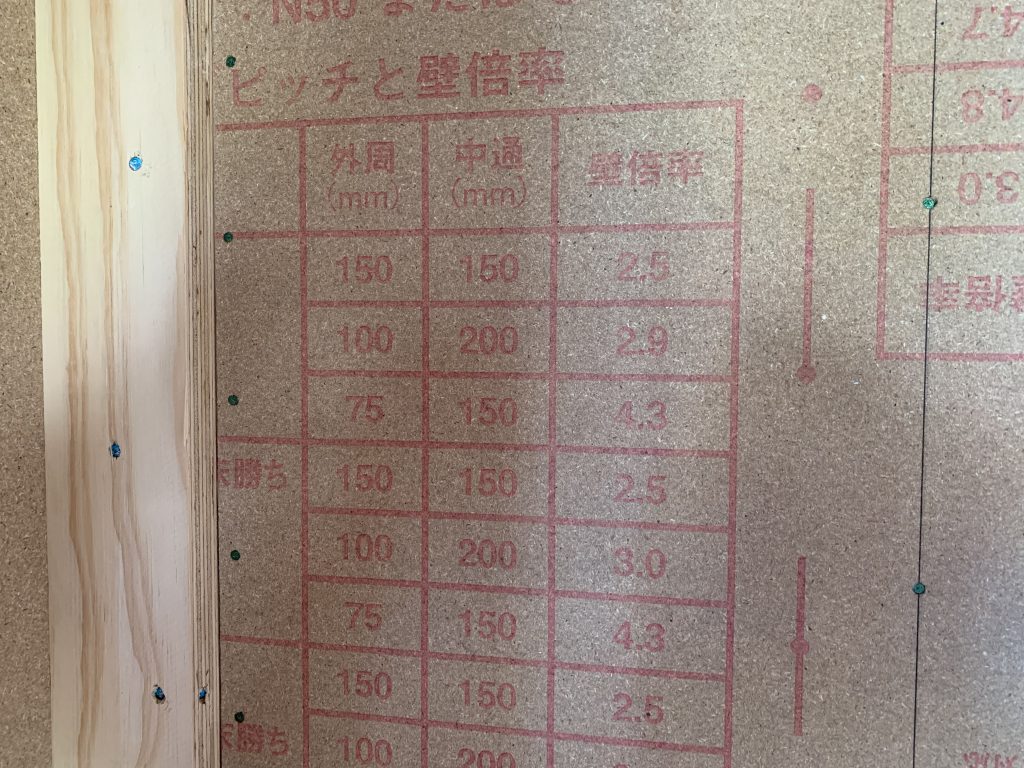 N50 または
ピッチと壁倍率
外周 中通 壁倍率
(mm) (mm)
150 150 2.5
100 200 2.9
75 150 4.3
床勝ち 150 150 2.5
100 200 3.0
75 150 4.3
150 150 2.5
床勝ち 100 200
4.7
4.8
3.0
壁倍率